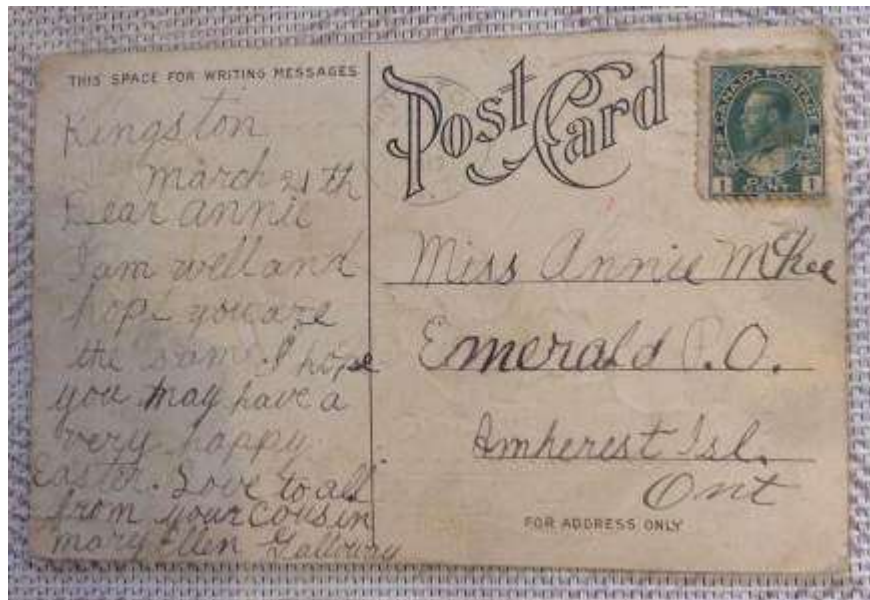 THIS SPACE FOR WRITING MESSAGES
Kingston
March 21th
Dear annie
I am well and
hope you are
the sam. I hope
you may have a
very happy
Easter. Love to all
from your cousin
mary Ellen
Post Card
CANADA POSTAGE
1 CENT 1
Miss Annie McKee
Emerald P.O.
Amherest Isl.
Ont
FOR ADDRESS ONLY